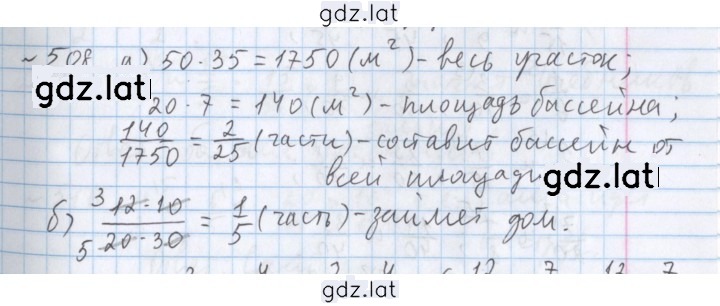 gdz.lat
№ 508 а) 50 · 35 = 1750 (м²) - весь участок;
gdz.lat
20 · 7 = 140 (м²) - площадь бассейна;
140/1750 = 2/25 (части) - составит бассейн от
всей площади
gdz.lat
б) 3 12 · 10 / 5 20 · 30 = 1/5 (часть) - займет дом.
gdz.lat